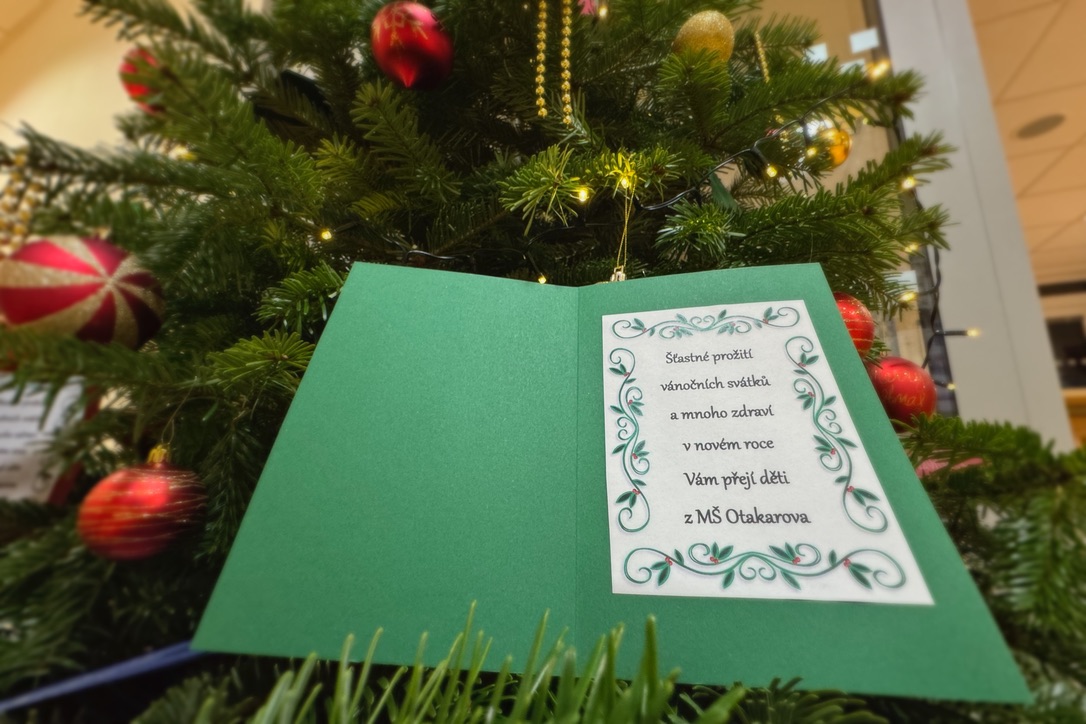 Šťastné prožití
vánočních svátků
a mnoho zdraví
v novém roce
Vám přejí děti
z MŠ Otakarova